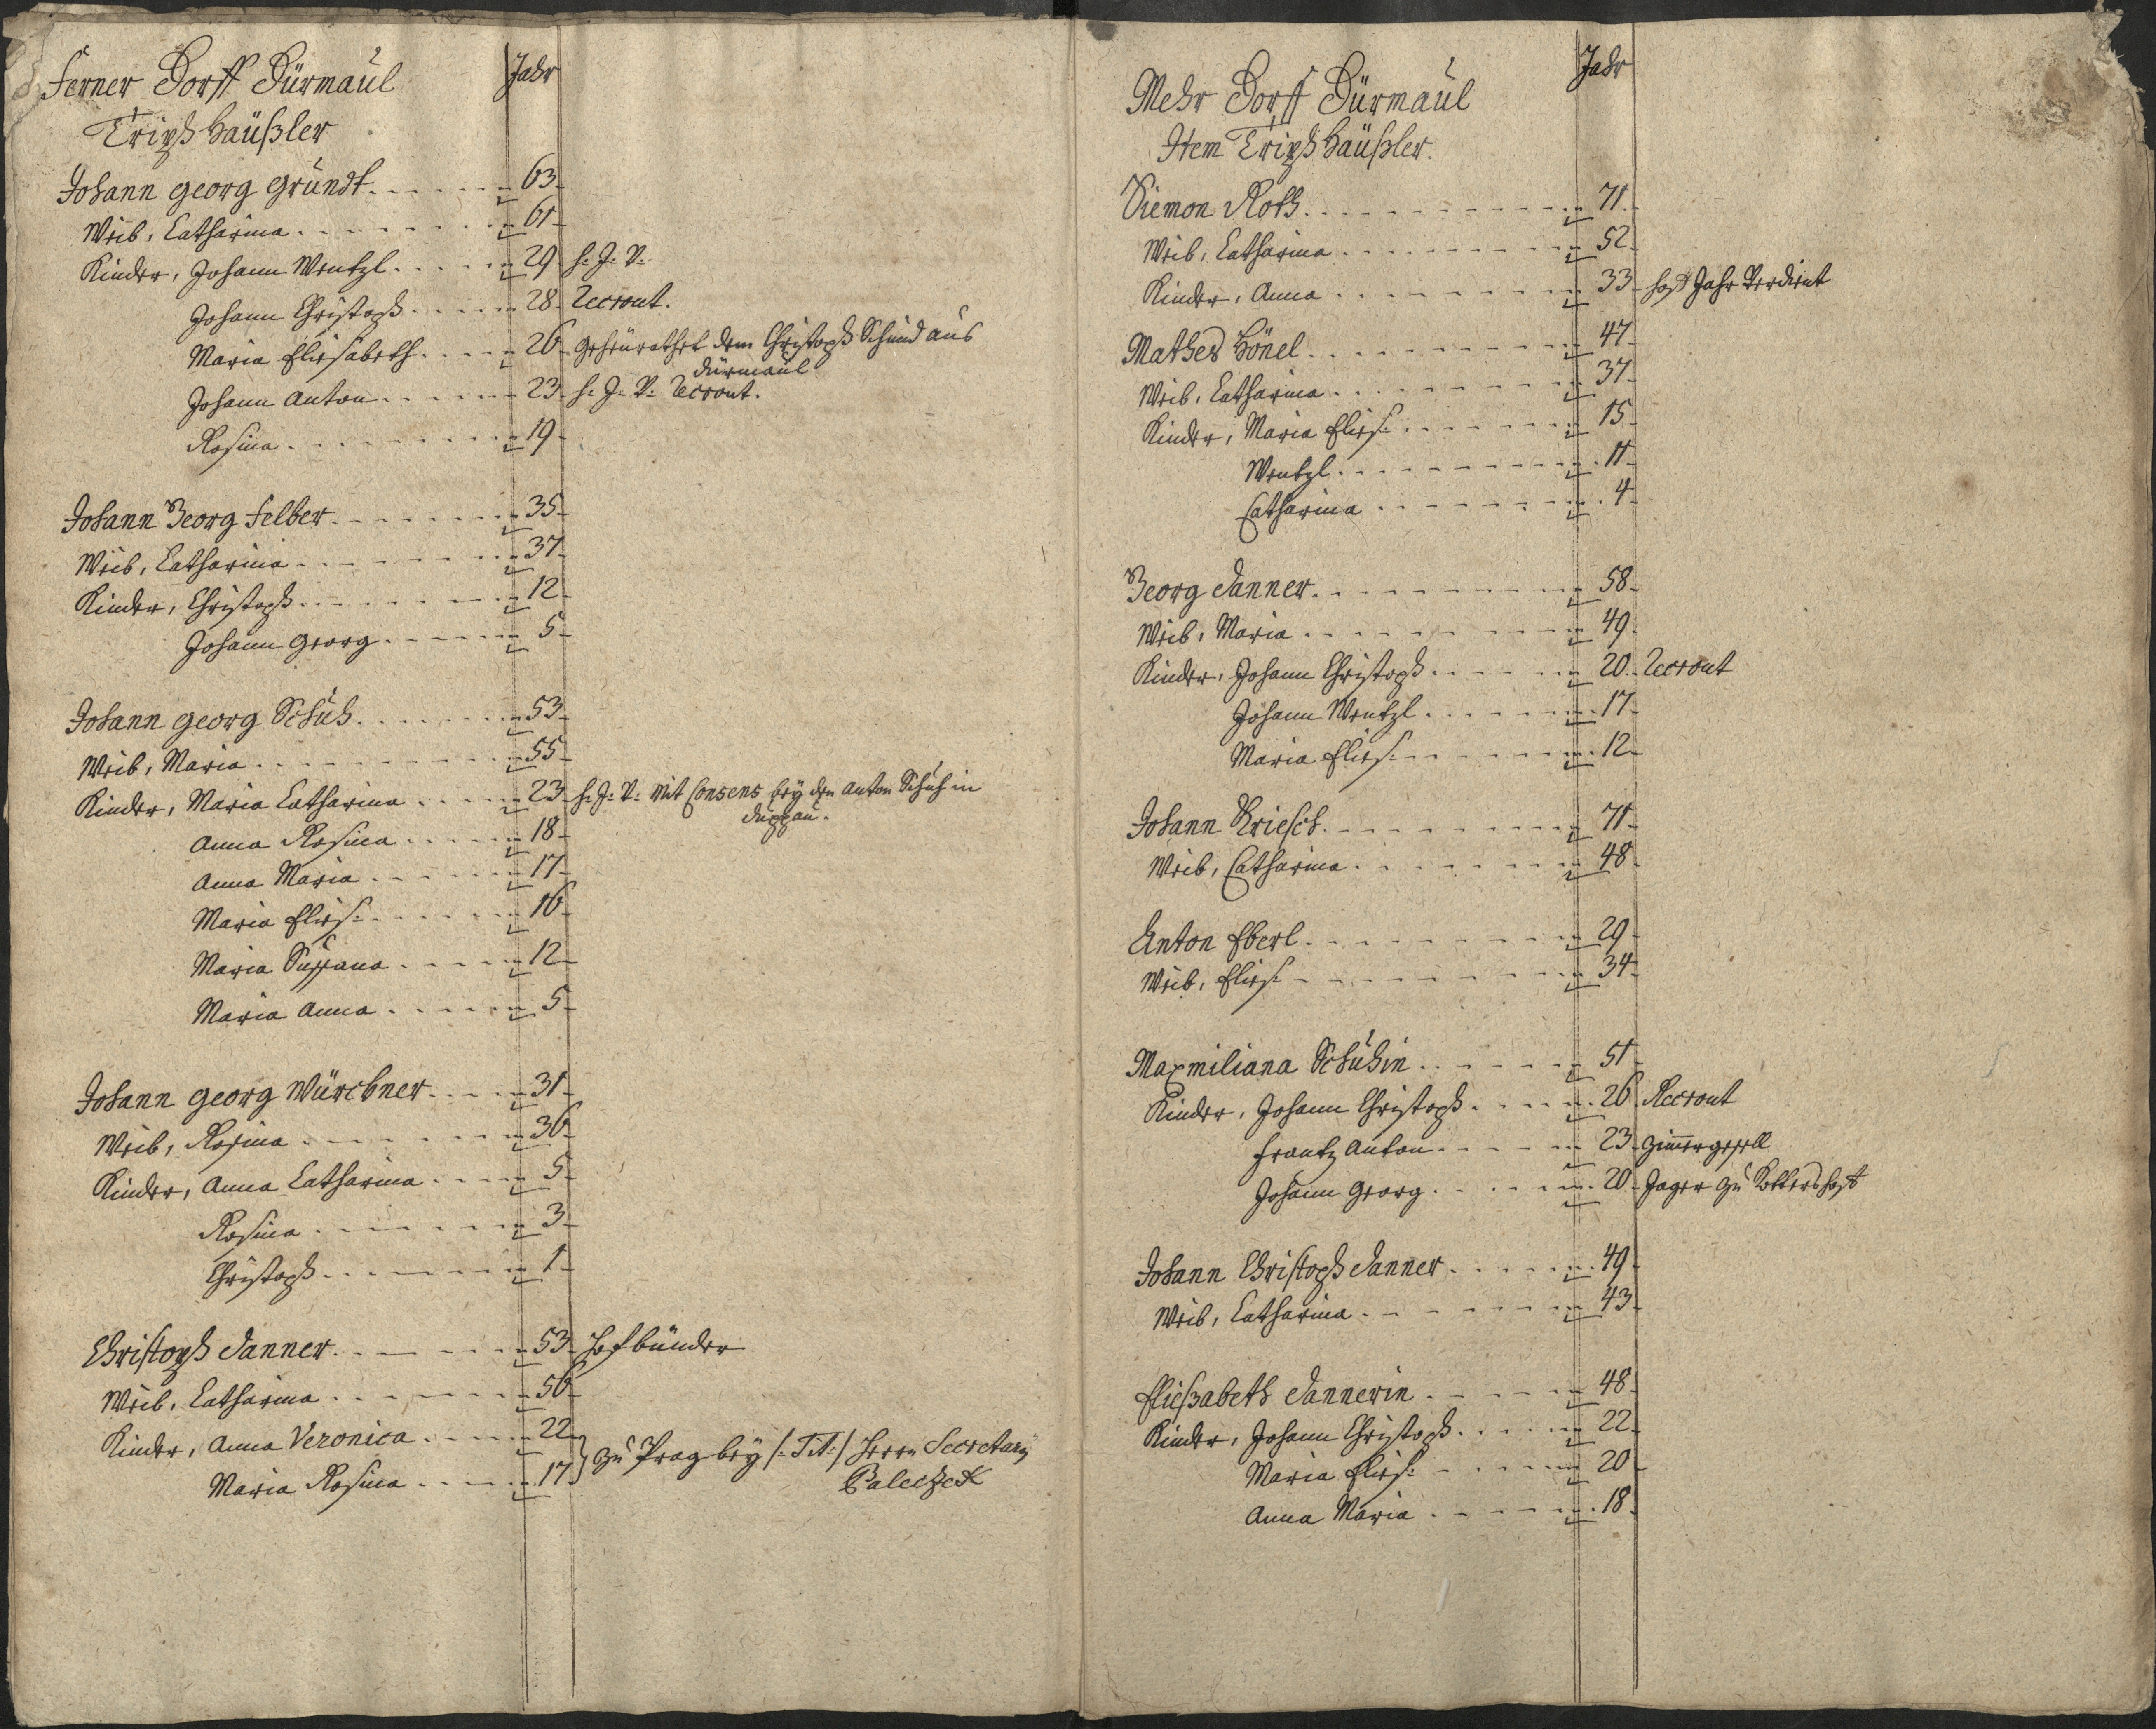 Ferner Dorff Dürmaul Jahr
Tripß Häußler
Johann Georg Gründt 63
Weib, Catharina 61
Kinder, Johann Wentzl 29 h: J: V:
Johann Christoph 28 Recrout.
Maria Eliesabeth 26 geheürathet dem Christoph Schmid aus
Dürmaul
Johann Anton 23 h: J: V: Recrout.
Rosina 19
Johann Georg Felber 35
Weib, Catharina 37
Kinder, Christoph 12
Johann Georg 5
Johann Georg Schuh 53
Weib, Maria 55
Kinder, Maria Catharina 23 h: J: V: Mit Consens bey den Anton Schuh in
Duppau.
Anna Rosina 18
Anna Maria 17
Maria Elies: 16
Maria Sussana 12
Maria Anna 5
Johann Georg Würchner 31
Weib, Rosina 36
Kinder, Anna Catharina 5
Rosina 3
Christoph 1
Christoph Danner 53 Hofbinder
Weib, Catharina 56
Kinder, Anna Veronica 22
Maria Rosina 17 } zu Prag bey /: Tit: / Herrn Secretary
Paleczek
Mehr Dorff Dürmaul Jahr
Item Tripß Häußler.
Siemon Roth 71
Weib, Catharina 52
Kinder, Anna 33 hoff Jahr Verdient
Mathes Hönel 47
Weib, Catharina 37
Kinder, Maria Elies: 15
Wentzl 11
Catharina 4
Georg Danner 58
Weib, Maria 49
Kinder, Johann Christoph 20 Recrout
Johann Wentzl 17
Maria Elies: 12
Johann Kriesch 71
Weib, Catharina 48
Anton Eberl 29
Weib, Elies: 34
Maxmiliana Schuhin 51
Kinder, Johann Christoph 26 Recrout
Frantz Anton 23 Zimergesell
Johann Georg 20 Jager zu
Johann Christoph Danner 49
Weib, Catharina 43
Eliesabeth Dannerin 48
Kinder, Johann Christoph 22
Maria Elies: 20
Anna Maria 18